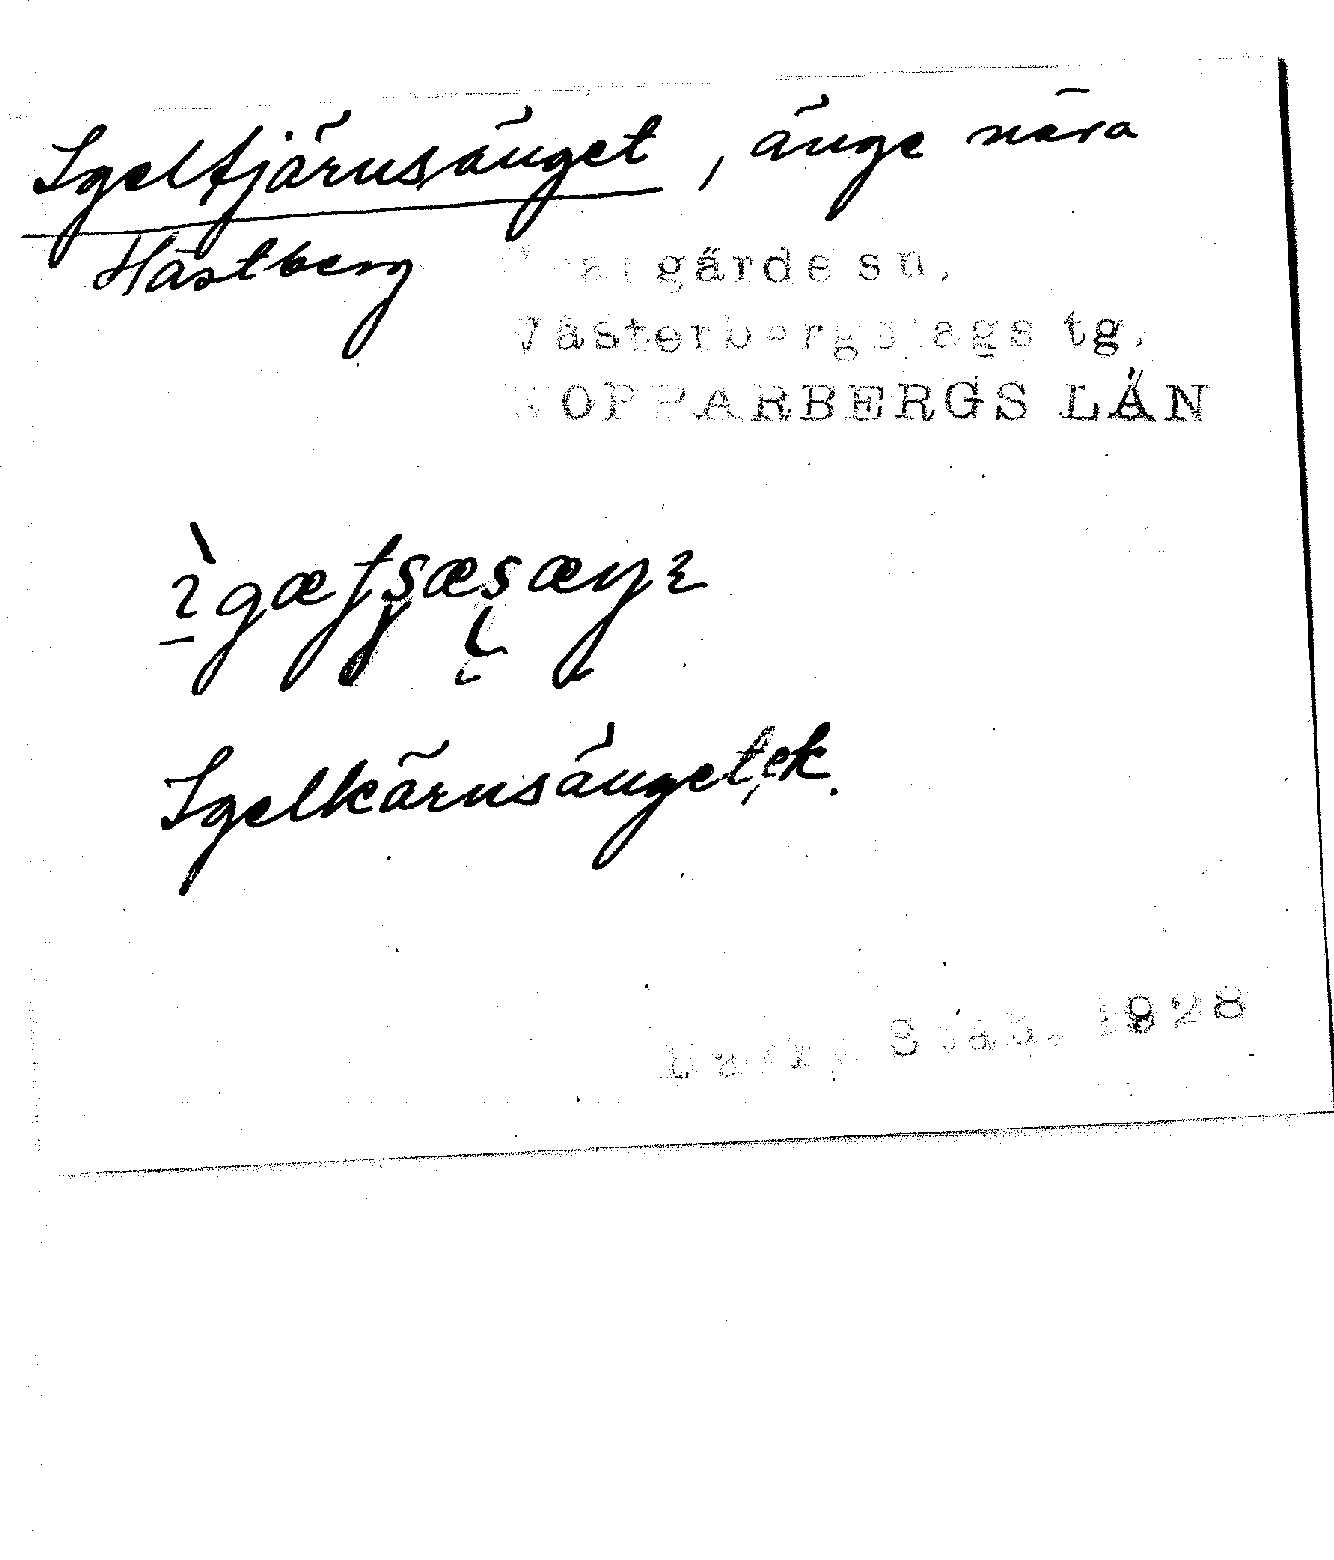 Igeltjärnsänget, änge nära
Hästberg
gärde sn.
Västerbergslags tg.
KOPPARBERGS LÄN
Igelkärnsänget, ek.
Ståh. 1928